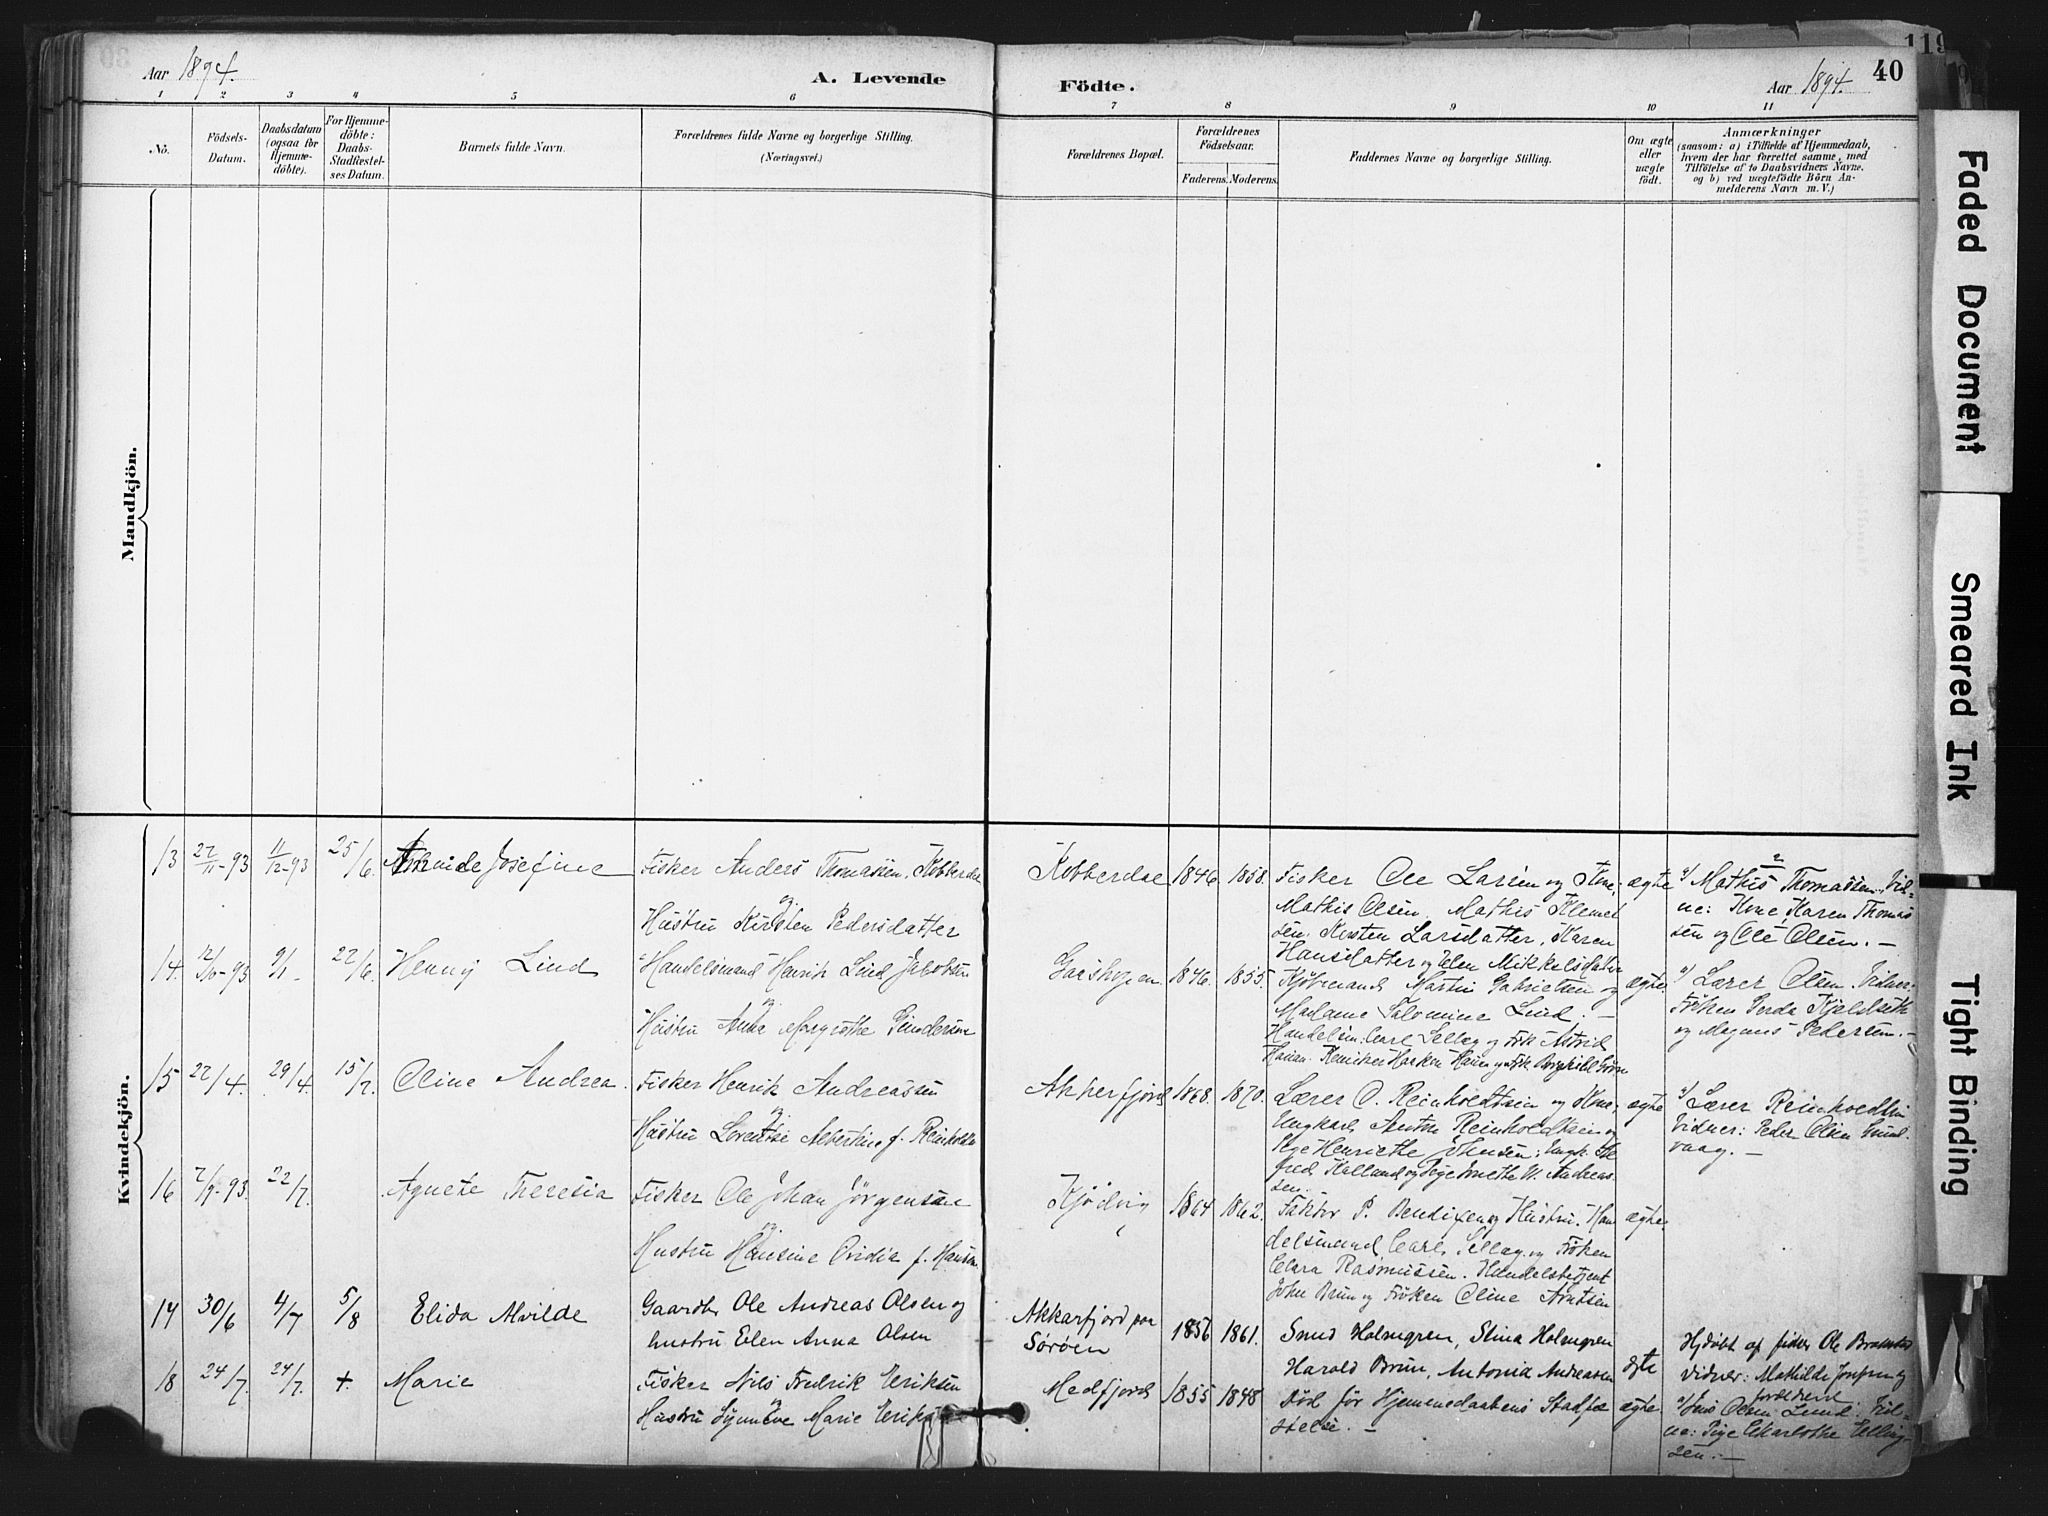 Aar 1894.
A. Levende
Födte.
Aar 1894.
40
119
1 2 3 4 5 6 7 8 9 10 11
No.
Födsels-
Datum.
Daabsdatum
(ogsaa for
Hjemme-
döbte).
For Hjemme-
döbte:
Daabs-
Stadfæstel-
ses Datum.
Barnets fulde Navn.
Forældrenes fulde Navne og borgerlige Stilling.
(Næringsvei.)
Forældrenes Bopæl.
Forældrenes
Födselsaar.
Faderens. Moderens.
Faddernes Navne og borgerlige Stilling.
Om ægte
eller
uægte
födt.
Anmærkninger
(saasom: a) i Tilfælde af Hjemmedaab,
hvem der har forrettet samme, med
Tilföielse af to Daabsvidners Navne.
og b) ved uægtefödte Börn An-
melderens Navn m. V.)
Mandkjön.
Kvindekjön.
13 27/11-93 11/12-93 25/6. Josefine
Fisker Anders Thomassen, Kobberdal
og
Hustru Kirsten Pedersdatter
Kobberdal 1846 1858.
Fisker Ole Larsen og Kone,
Mathis Olsen, Mathis Klemet
sen, Kirsten Larsdatter, Karen
Hansdatter og Elen Mikkelsdatter
ægte
a) Mathis Thomassen. Vid-
ne: Kone Karen Thomas
sen og Ole Olsen. -
14. 12/10-93 9/1 - 22/6. Henny Lind
Handelsmand Henrik Lind Jacobsen
og
Hustru Anna Margrethe
1846. 1855.
Kjöbmand Martin Gabrielsen og
Madame Lind. -
Handelsm: Carl og Frk Astrid
ægte.
a) Lærer Olsen. Vidner:
Fröken Gerda
og Magnus Pedersen. -
15 22/4. 29/4. 15/7. Oline Andrea.
Fisker Henrik Andreassen
og
Hustru Lorentse Albertine f. Reinholdtsen
Akkerfjord 1868. 1870.
Lærer O. Reinholdtsen og Kone,
Ungkarl Anton Reinholdtsen og
Pige Henriette Johnsen; Ungk.
sen.
ægte
a) Lærer Reinholdtsen
Vidner: Peder Olsen
vaag. -
16 7/9-93. 22/7. Agnete Theresia
Fisker Ole Johan Jörgensen
og
Hustru Hansine Ovidia f. Hansen
Kjödvig 1864 1862.
Faktor P. Bendixen og Hustru. Han
delsmand Carl og Fröken
Clara Rasmussen. Handelsbetjent
John Brun og Fröken Oline Arntsen
ægte
17 30/6 4/7 5/8 Elida Alvilde
Gaardbr Ole Andreas Olsen og
hustru Elen Anna Olsen
Akkarfjord paa
Sörøen
1856 1861.
Holmgren, Stina Holmgren
Harald Brun, Antonia Andreassen
ægte
Hjdöbt af fisker Ole
vidner: Mathilde og
forældrene
18 24/7. 24/7. +. Marie
Fisker Nils Fredrik Eriksen
og
Hustru Synnöve Marie Eriksen
Medfjord 1855 1848
Död før Hjemmedaabens Stadfæ
stelse. -
ægte
a) Jens Olsen Lund. Vid-
ne: Pige Charlotte Elling-
sen. -
Faded Document
Smeared Ink
Tight Binding